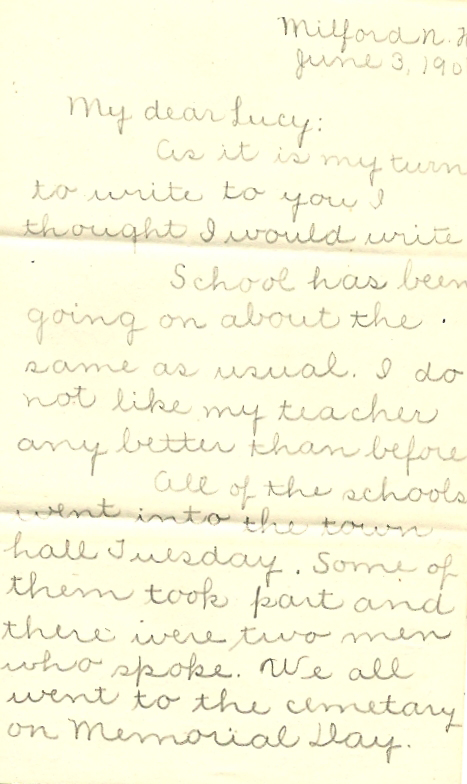 Milford N. H
June 3, 190
My dear Lucy:
As it is my turn
to write to you I
thought I would write
School has been
going on about the
same as usual. I do
not like my teacher
any better than before
All of the schools
went into the town
hall Tuesday. Some of
them took part and
there were two men
who spoke. We all
went to the cemetary
on Memorial Day.